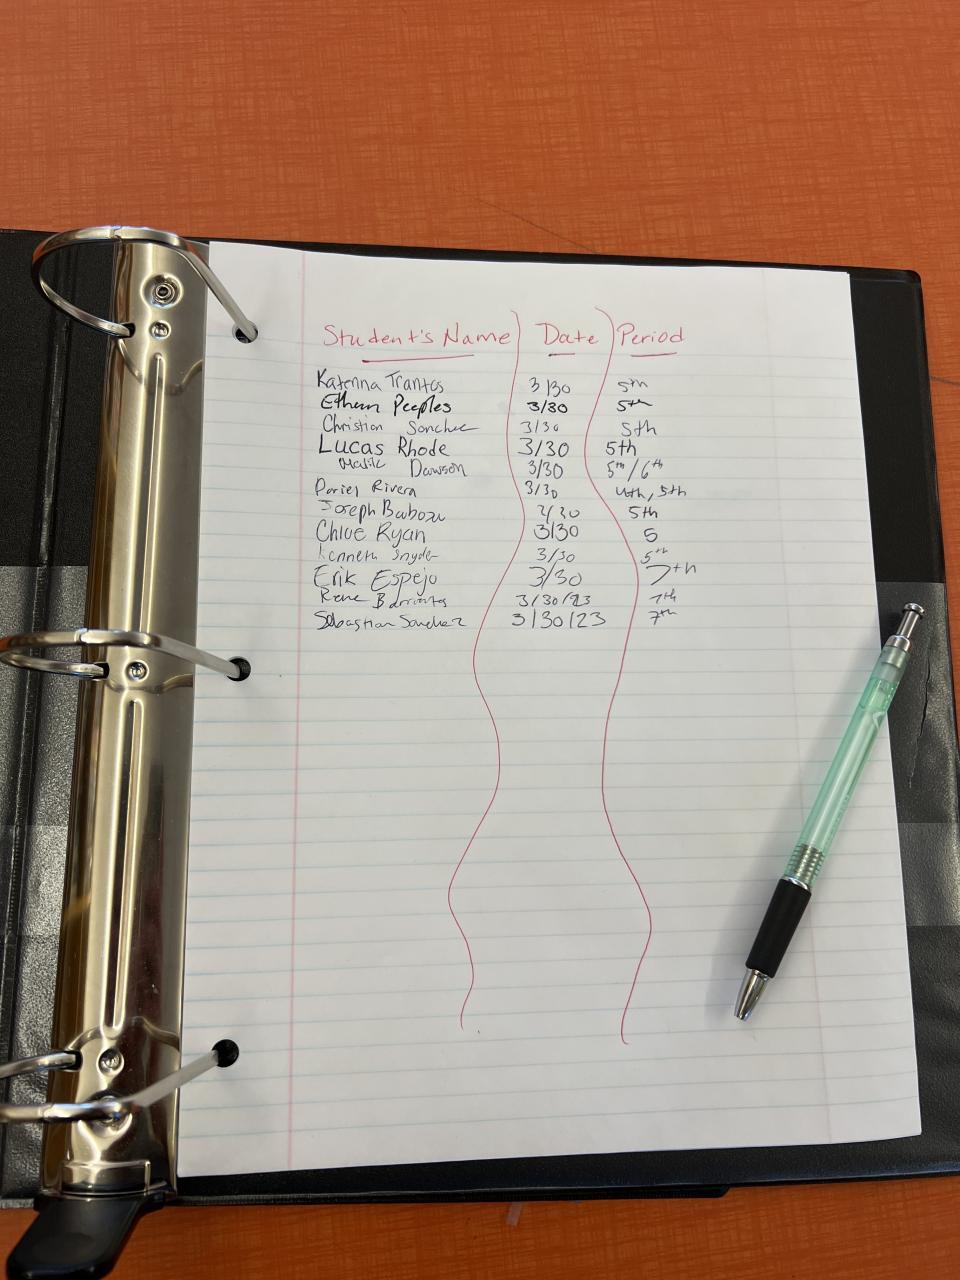 Student's Name Date Period
Katerina Trantos 3/30 5th
Ethan Peeples 3/30 5th
Christian Sanchez 3/30 5th
Lucas Rhode 3/30 5th
Malik Dawson 3/30 5th/6th
Dariel Rivera 3/30 4th, 5th
Joseph 3/30 5th
Chloe Ryan 3/30 5
Kenneth Snyder 3/30 5th
Erik Espejo 3/30 7th
Rene Barrientos 3/30/23 7th
Sebastian Sanchez 3/30/23 7th